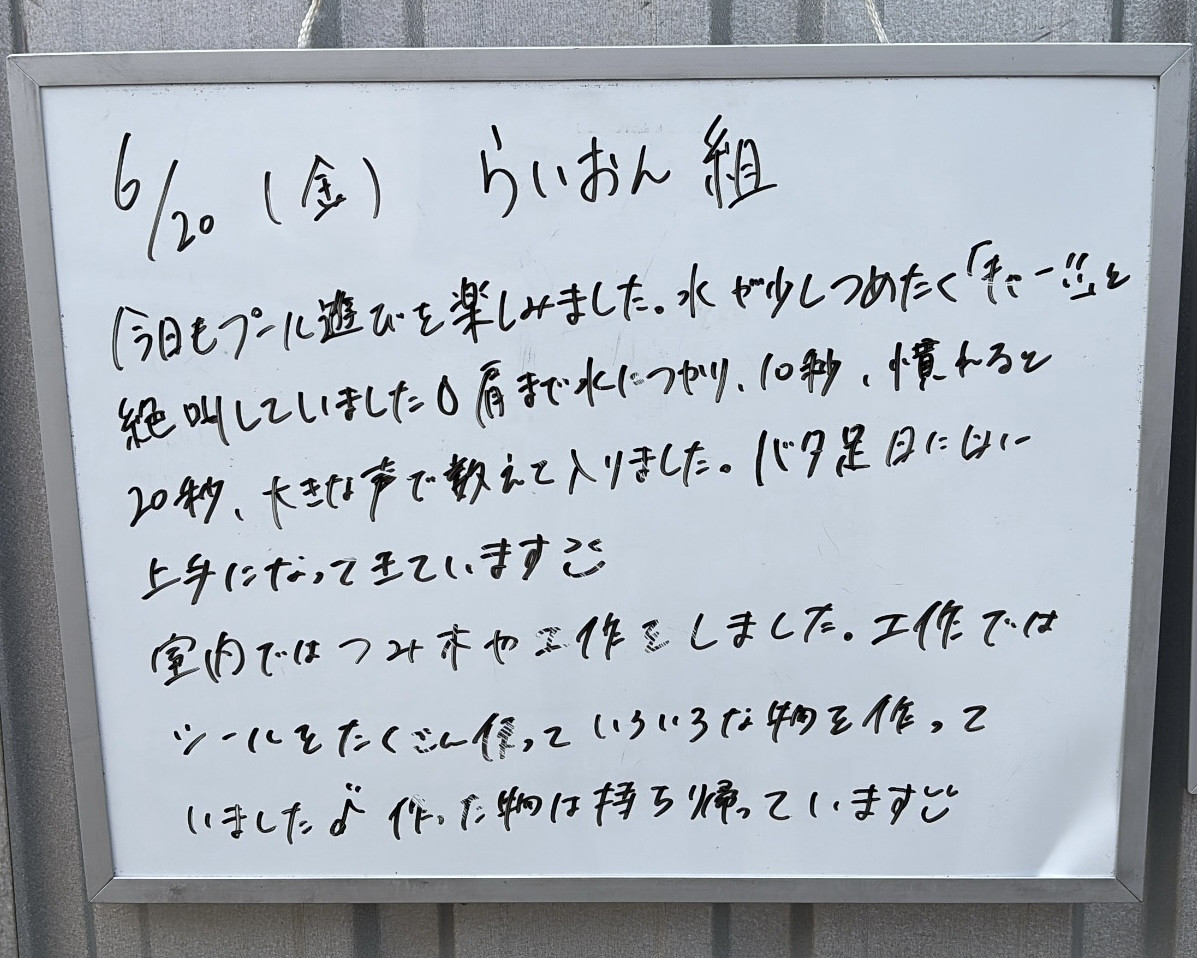 6/20 (金) らいおん組
今日もプール遊びを楽しみました。水が少しつめたく「きゃー!!」と
絶叫していました 肩まで水につかり、10秒、慣れると
20秒、大きな声で数えて入りました。バタ足日に日に
上手になってきています
室内ではつみ木や工作をしました。工作では
シールをたくさん作っていろいろな物を作って
いました♪ 作った物は持ち帰っています